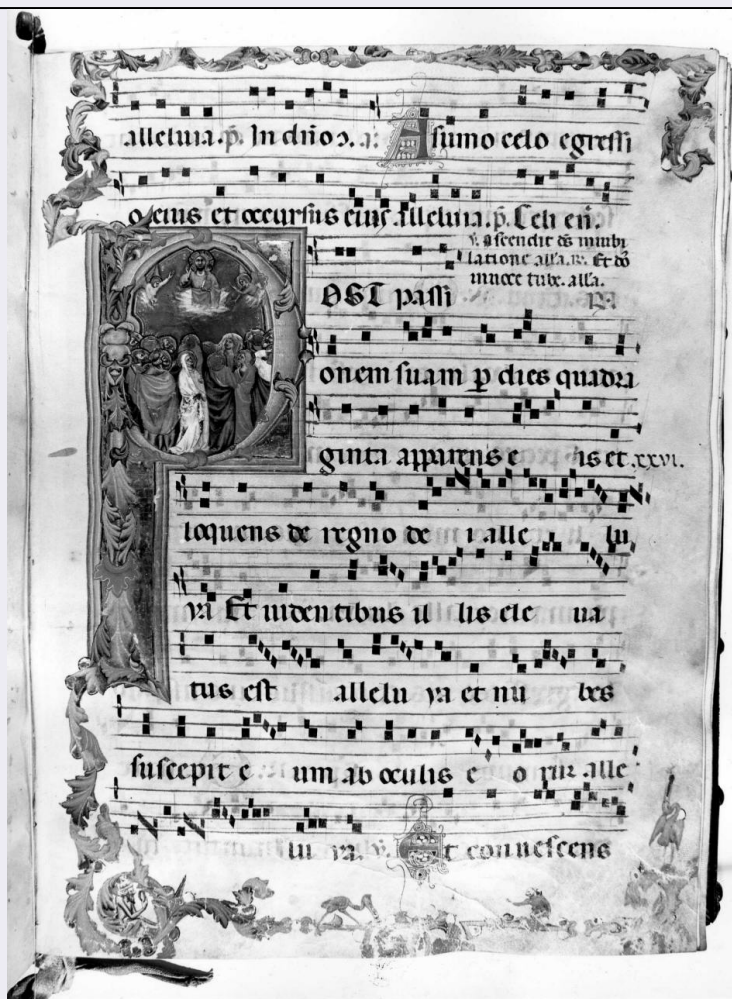 alleluia. p̄. In dño ɔ. a: A sumo celo egressi
o eius et occursus eius alleluia. p̄. Celi en̄.
v. Ascendit d̄s in iubi
latione all'a. ℟. Et dō
in uoce tube. all'a.
POST passi ℟.
onem suam p̱ dies quadra
ginta apparens e is et .xxvi.
loquens de regno de i alle lu
ya Et uidentibus il lis ele ua
tus est allelu ya et nu bes
suscepit e um ab oculis e o rum alle
lu ya. v. Et conuescens